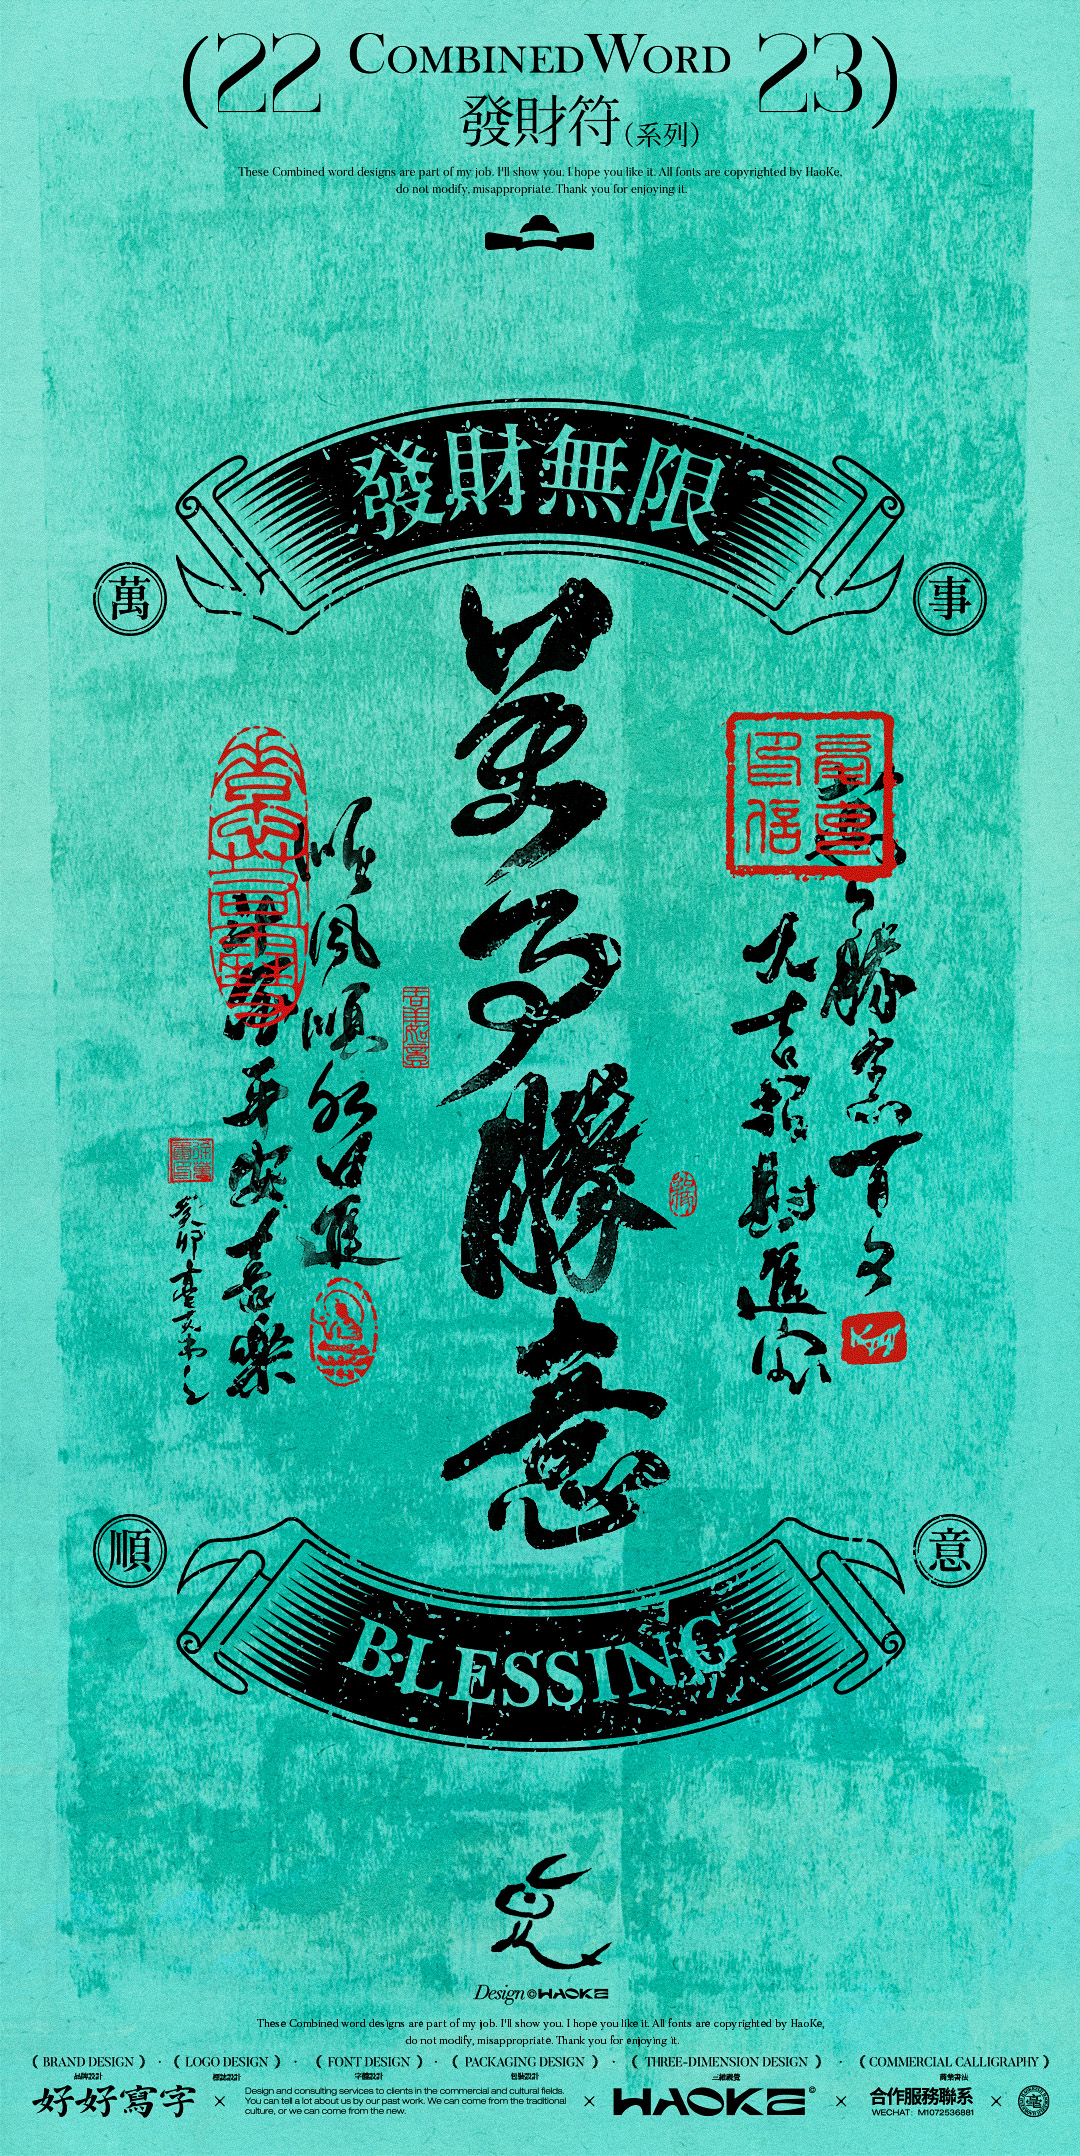 (22 COMBINED WORD 23)
發財符(系列)
These Combined word designs are part of my job. I'll show you. I hope you like it. All fonts are copyrighted by HaoKe,
do not modify, misappropriate. Thank you for enjoying it.
發財無限
萬
事
萬事勝意
大吉招財進寶
順風順水日進
平安喜樂
順
意
BLESSING
Design © HAOKE
These Combined word designs are part of my job. I'll show you. I hope you like it. All fonts are copyrighted by HaoKe,
do not modify, misappropriate. Thank you for enjoying it.
( BRAND DESIGN ) · ( LOGO DESIGN ) · ( FONT DESIGN ) · ( PACKAGING DESIGN ) · ( THREE-DIMENSION DESIGN ) · ( COMMERCIAL CALLIGRAPHY )
品牌設計 標誌設計 字體設計 包裝設計 三維視覺 商業書法
好好寫字 × Design and consulting services to clients in the commercial and cultural fields.
You can tell a lot about us by our past work. We can come from the traditional
culture, or we can come from the new.
× HAOKE © × 合作服務聯系
WECHAT: M1072536881 ×